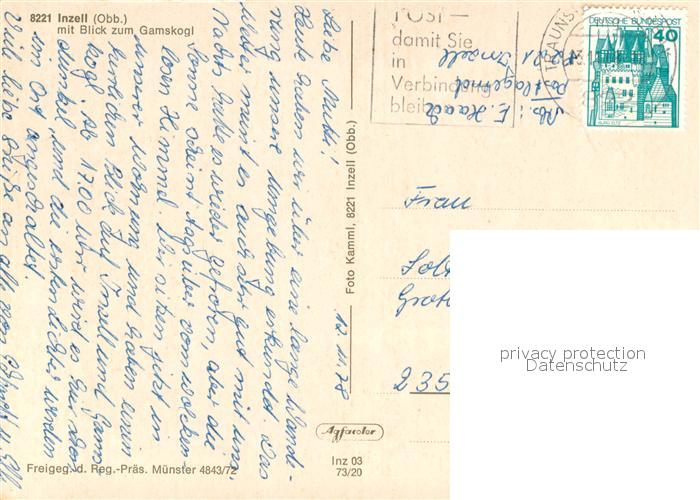 8221 Inzell (Obb.)
mit Blick zum Gamskogl
Liebe Mutti!
Heute haben wir über eine lange Wande-
rung unsere Umgebung erkundet. Das
Wetter meint es auch sehr gut mit uns.
Nachts hat es wieder gefroren, aber die
Sonne scheint tagsüber vom wolken-
losen Himmel. Wir sitzen jetzt in
unserer Wohnung und haben einen
Blick auf Inzell und Gams-
kogl. Ab 17.00 Uhr wird es
dunkel, und die ersten Lichter werden
im Ort angeschaltet.
Viele liebe Grüße an alle von
12.11.78
Foto Kamml, 8221 Inzell (Obb.)
POST —
damit Sie
in
Verbindung
bleiben
Abs.: E. Haack
postlagernd
8221 Inzell
TRAUNS
DEUTSCHE BUNDESPOST
40
BURG ELTZ
Frau
235
privacy protection
Datenschutz
Agfacolor
Inz 03
73/20
Freigeg. d. Reg.-Präs. Münster 4843/72